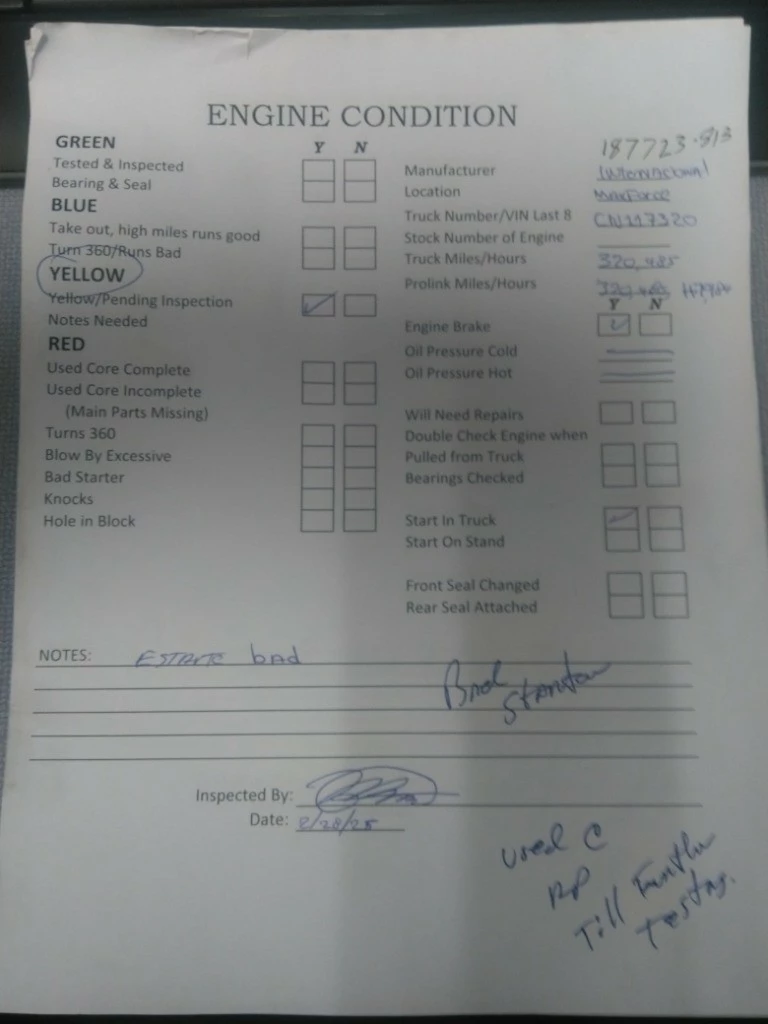 ENGINE CONDITION
187723.813
GREEN Y N
Tested & Inspected
Bearing & Seal
BLUE
Take out, high miles runs good
Turn 360/Runs Bad
YELLOW
Yellow/Pending Inspection
Notes Needed
RED
Used Core Complete
Used Core Incomplete
(Main Parts Missing)
Turns 360
Blow By Excessive
Bad Starter
Knocks
Hole in Block
Manufacturer International
Location MaxForce
Truck Number/VIN Last 8 CN117320
Stock Number of Engine
Truck Miles/Hours 320,485
Prolink Miles/Hours
Y N
Engine Brake
Oil Pressure Cold
Oil Pressure Hot
Will Need Repairs
Double Check Engine when
Pulled from Truck
Bearings Checked
Start In Truck
Start On Stand
Front Seal Changed
Rear Seal Attached
NOTES: bad
Inspected By:
Date: 2/28/25
Used C
Till Further
testng.